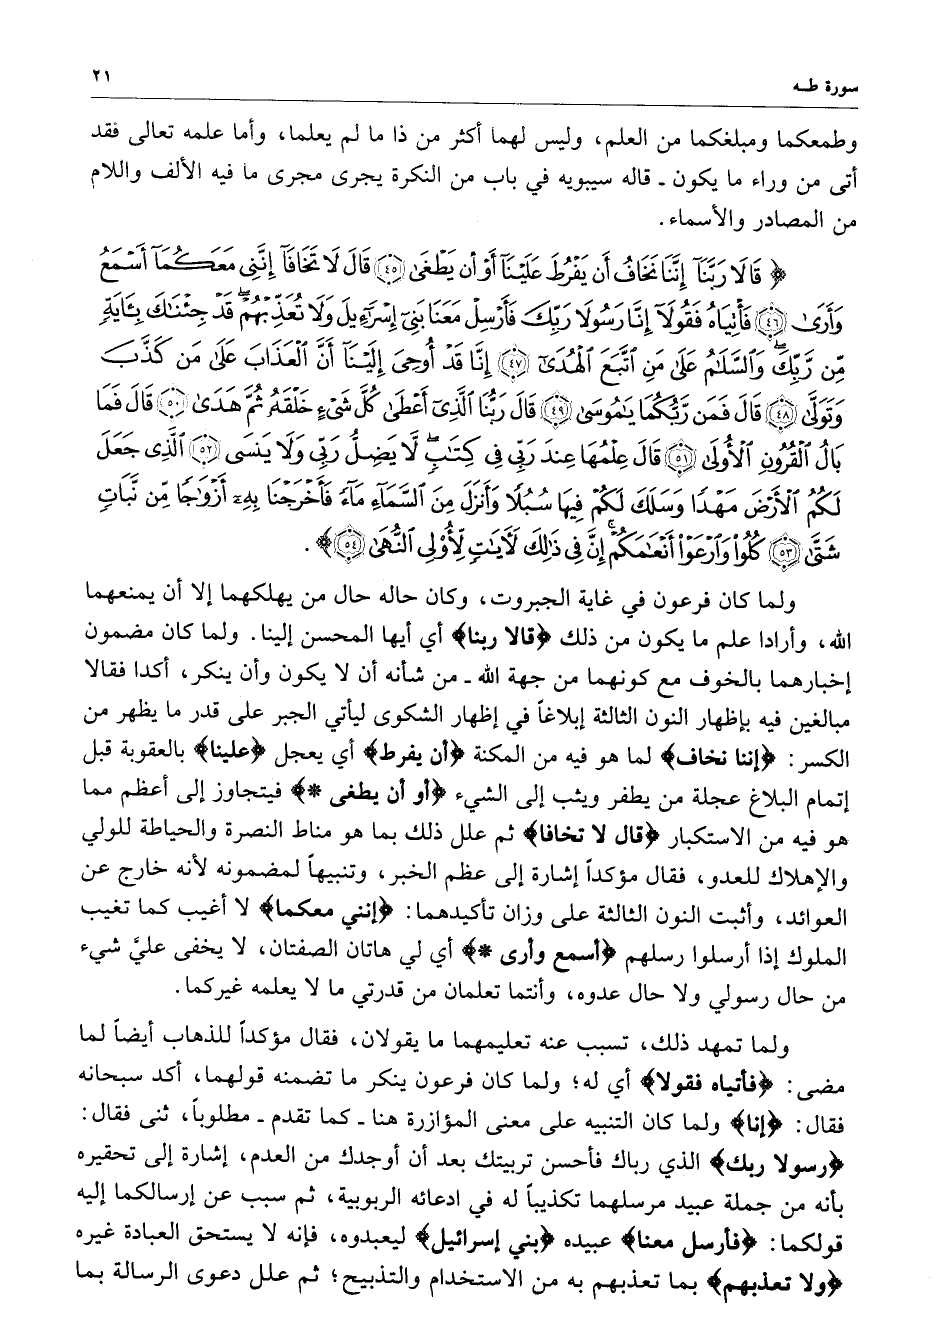 سورة طـه
٢١
وطمعكما ومبلغكما من العلم، وليس لهما أكثر من ذا ما لم يعلما، وأما علمه تعالى فقد
أتى من وراء ما يكون ـ قاله سيبويه في باب من النكرة يجرى مجرى ما فيه الألف واللام
من المصادر والأسماء.
﴿ قَالَا رَبَّنَآ إِنَّنَا نَخَافُ أَن يَفْرُطَ عَلَيْنَآ أَوْ أَن يَطْغَىٰ ﴿٤٥﴾ قَالَ لَا تَخَافَآ إِنَّنِى مَعَكُمَآ أَسْمَعُ
وَأَرَىٰ ﴿٤٦﴾ فَأْتِيَاهُ فَقُولَآ إِنَّا رَسُولَا رَبِّكَ فَأَرْسِلْ مَعَنَا بَنِىٓ إِسْرَٰٓءِيلَ وَلَا تُعَذِّبْهُمْ ۖ قَدْ جِئْنَٰكَ بِـَٔايَةٍ
مِّن رَّبِّكَ ۖ وَٱلسَّلَٰمُ عَلَىٰ مَنِ ٱتَّبَعَ ٱلْهُدَىٰٓ ﴿٤٧﴾ إِنَّا قَدْ أُوحِىَ إِلَيْنَآ أَنَّ ٱلْعَذَابَ عَلَىٰ مَن كَذَّبَ
وَتَوَلَّىٰ ﴿٤٨﴾ قَالَ فَمَن رَّبُّكُمَا يَٰمُوسَىٰ ﴿٤٩﴾ قَالَ رَبُّنَا ٱلَّذِىٓ أَعْطَىٰ كُلَّ شَىْءٍ خَلْقَهُۥ ثُمَّ هَدَىٰ ﴿٥٠﴾ قَالَ فَمَا
بَالُ ٱلْقُرُونِ ٱلْأُولَىٰ ﴿٥١﴾ قَالَ عِلْمُهَا عِندَ رَبِّى فِى كِتَٰبٍ ۖ لَّا يَضِلُّ رَبِّى وَلَا يَنسَى ﴿٥٢﴾ ٱلَّذِى جَعَلَ
لَكُمُ ٱلْأَرْضَ مَهْدًا وَسَلَكَ لَكُمْ فِيهَا سُبُلًا وَأَنزَلَ مِنَ ٱلسَّمَآءِ مَآءً فَأَخْرَجْنَا بِهِۦٓ أَزْوَٰجًا مِّن نَّبَاتٍ
شَتَّىٰ ﴿٥٣﴾ كُلُوا۟ وَٱرْعَوْا۟ أَنْعَٰمَكُمْ ۗ إِنَّ فِى ذَٰلِكَ لَءَايَٰتٍ لِّأُو۟لِى ٱلنُّهَىٰ ﴿٥٤﴾ ﴾ .
ولما كان فرعون في غاية الجبروت، وكان حاله حال من يهلكهما إلا أن يمنعهما
الله، وأرادا علم ما يكون من ذلك ﴿قالا ربنا﴾ أي أيها المحسن إلينا. ولما كان مضمون
إخبارهما بالخوف مع كونهما من جهة الله ـ من شأنه أن لا يكون وأن ينكر، أكدا فقالا
مبالغين فيه بإظهار النون الثالثة إبلاغاً في إظهار الشكوى ليأتي الجبر على قدر ما يظهر من
الكسر: ﴿إننا نخاف﴾ لما هو فيه من المكنة ﴿أن يفرط﴾ أي يعجل ﴿علينا﴾ بالعقوبة قبل
إتمام البلاغ عجلة من يطفر ويثب إلى الشيء ﴿أو أن يطغى *﴾ فيتجاوز إلى أعظم مما
هو فيه من الاستكبار ﴿قال لا تخافا﴾ ثم علل ذلك بما هو مناط النصرة والحياطة للولي
والإهلاك للعدو، فقال مؤكداً إشارة إلى عظم الخبر، وتنبيهاً لمضمونه لأنه خارج عن
العوائد، وأثبت النون الثالثة على وزان تأكيدهما: ﴿إنني معكما﴾ لا أغيب كما تغيب
الملوك إذا أرسلوا رسلهم ﴿أسمع وأرى *﴾ أي لي هاتان الصفتان، لا يخفى عليَّ شيء
من حال رسولي ولا حال عدوه، وأنتما تعلمان من قدرتي ما لا يعلمه غيركما.
ولما تمهد ذلك، تسبب عنه تعليمهما ما يقولان، فقال مؤكداً للذهاب أيضاً لما
مضى: ﴿فأتياه فقولا﴾ أي له؛ ولما كان فرعون ينكر ما تضمنه قولهما، أكد سبحانه
فقال: ﴿إنا﴾ ولما كان التنبيه على معنى المؤازرة هنا ـ كما تقدم ـ مطلوباً، ثنى فقال:
﴿رسولا ربك﴾ الذي رباك فأحسن تربيتك بعد أن أوجدك من العدم، إشارة إلى تحقيره
بأنه من جملة عبيد مرسلهما تكذيباً له في ادعائه الربوبية، ثم سبب عن إرسالكما إليه
قولكما: ﴿فأرسل معنا﴾ عبيده ﴿بني إسرائيل﴾ ليعبدوه، فإنه لا يستحق العبادة غيره
﴿ولا تعذبهم﴾ بما تعذبهم به من الاستخدام والتذبيح؛ ثم علل دعوى الرسالة بما